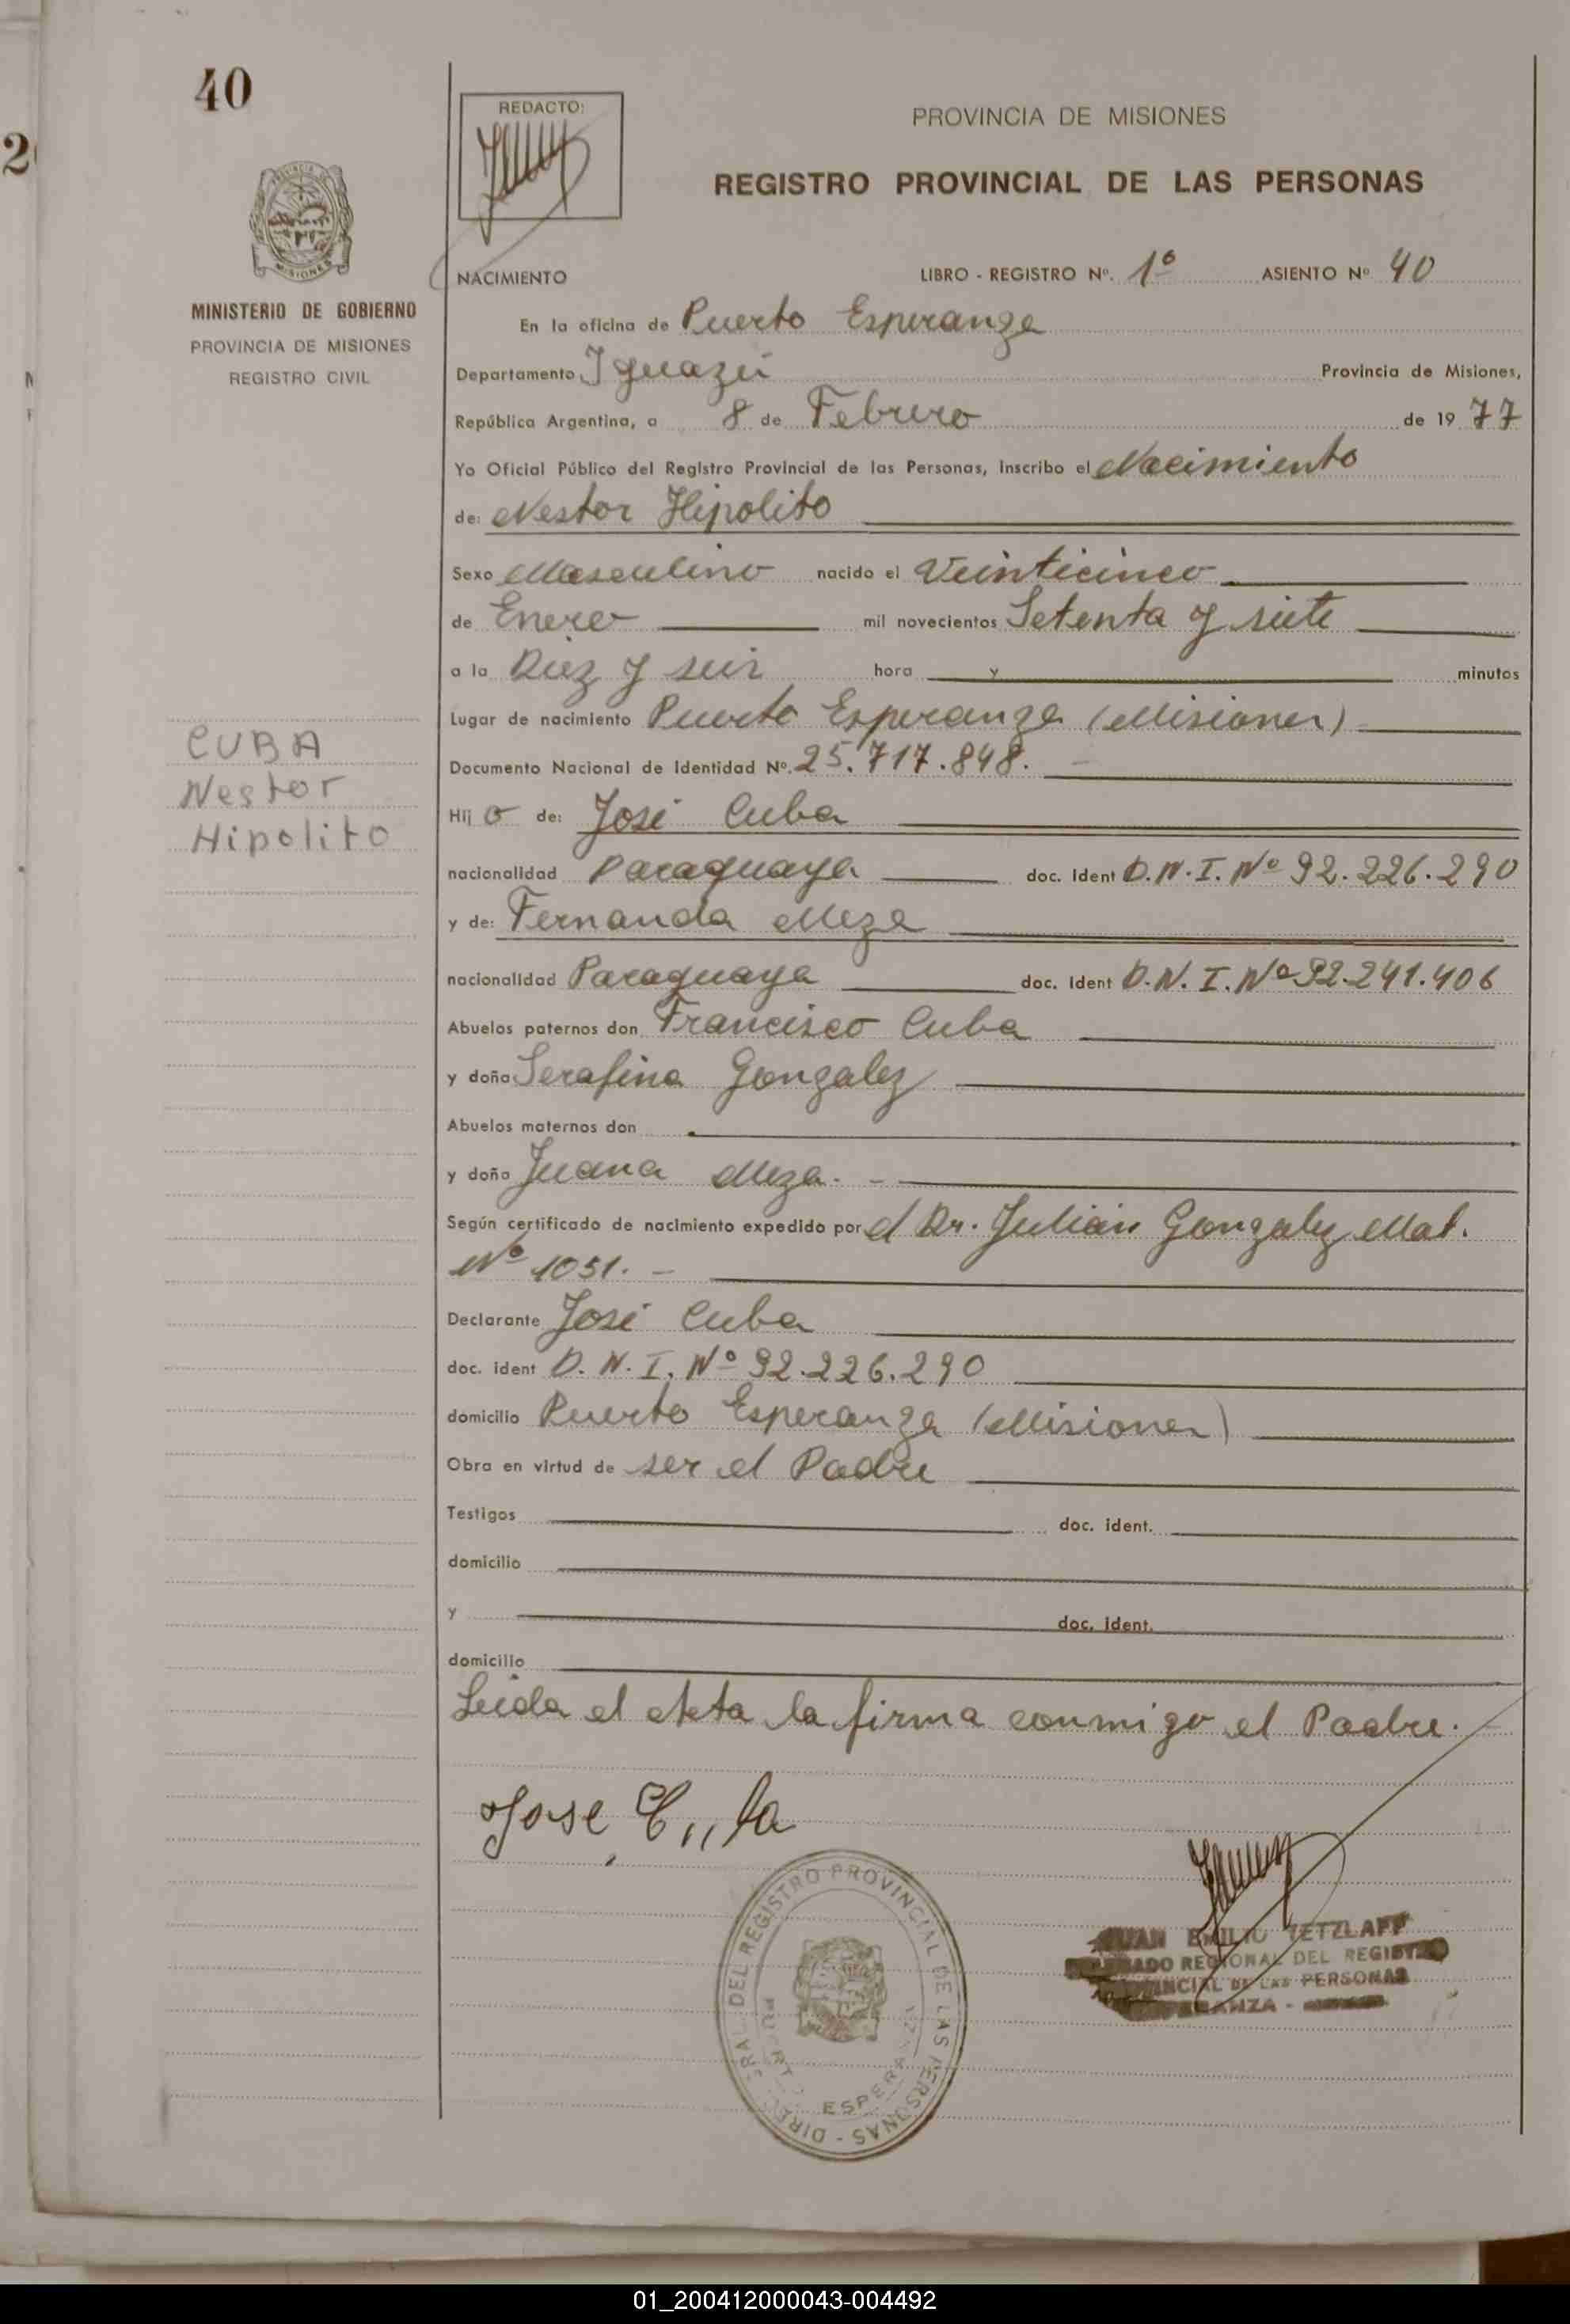 40
REDACTO:
PROVINCIA DE MISIONES
REGISTRO PROVINCIAL DE LAS PERSONAS
MISIONES
NACIMIENTO
LIBRO - REGISTRO Nº. 1º ASIENTO Nº 40
MINISTERIO DE GOBIERNO
PROVINCIA DE MISIONES
REGISTRO CIVIL
En la oficina de Puerto Esperanza
Departamento Iguazú Provincia de Misiones,
República Argentina, a 8 de Febrero de 19 77
Yo Oficial Público del Registro Provincial de las Personas, inscribo el Nacimiento
de: Nestor Hipolito
Sexo Masculino nacido el Veinticinco
de Enero mil novecientos Setenta y siete
a la Diez y seis hora y minutos
Lugar de nacimiento Puerto Esperanza (Misiones)
CUBA
Nestor
Hipolito
Documento Nacional de Identidad Nº. 25.717.848. -
Hij o de: José Cuba
nacionalidad Paraguaya doc. Ident D.N.I. Nº 92.226.290
y de: Fernanda Meza
nacionalidad Paraguaya doc. Ident D.N.I. Nº 92.241.406
Abuelos paternos don Francisco Cuba
y doña Serafina Gonzalez
Abuelos maternos don
y doña Juana Meza. -
Según certificado de nacimiento expedido por el Dr. Julián Gonzalez Mat.
Nº 1051. -
Declarante José Cuba
doc. ident D.N.I. Nº 92.226.290
domicilio Puerto Esperanza (Misiones)
Obra en virtud de ser el Padre
Testigos doc. ident.
domicilio
y doc. ident.
domicilio
Leida el Acta la firma conmigo el Padre. -
Jose Cuba
DEL REGISTRO PROVINCIAL DE LAS PERSONAS - ESPERANZA
JUAN EMILIO TETZLAFF
DELEGADO REGIONAL DEL REGISTRO
PROVINCIAL DE LAS PERSONAS
ESPERANZA -
01_200412000043-004492